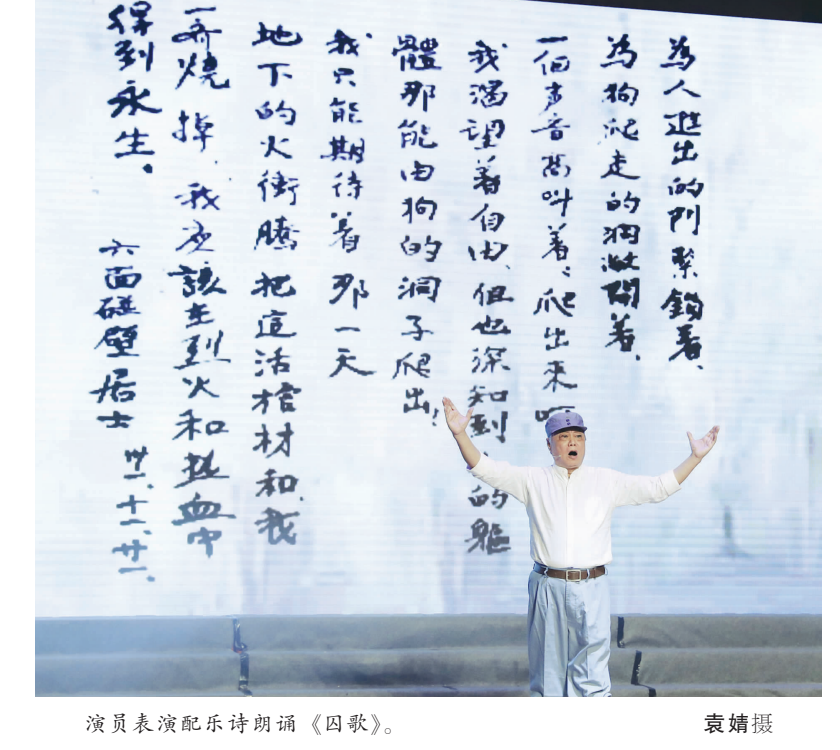 為人進出的門緊鎖着、
為狗爬走的洞敞開着、
一個声音高叫着、爬出來
我渴望着自由、但也深知到的軀
體那能由狗的洞子爬出!
我只能期待着那一天
地下的火衝騰把這活棺材和我
一齐燒掉,我应該在烈火和热血中
得到永生。
六面碰壁居士 卅一、十一、廿一、
演员表演配乐诗朗诵《囚歌》。
袁婧摄